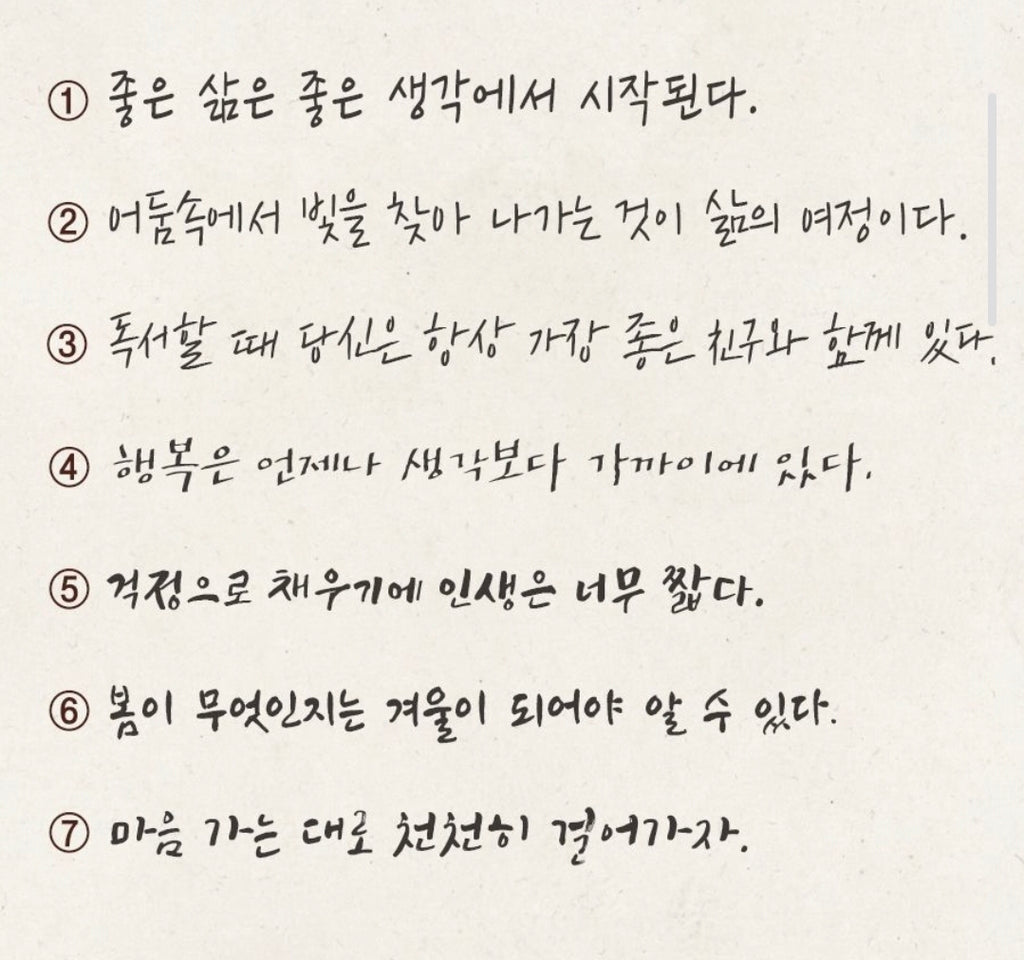 ① 좋은 삶은 좋은 생각에서 시작된다.
② 어둠속에서 빛을 찾아 나가는 것이 삶의 여정이다.
③ 독서할 때 당신은 항상 가장 좋은 친구와 함께 있다.
④ 행복은 언제나 생각보다 가까이에 있다.
⑤ 걱정으로 채우기에 인생은 너무 짧다.
⑥ 봄이 무엇인지는 겨울이 되어야 알 수 있다.
⑦ 마음 가는 대로 천천히 걸어가자.